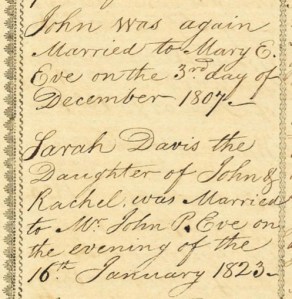 John was again
Married to Mary E.
Eve on the 3rd day of
December 1807.—
Sarah Davis the
Daughter of John &
Rachel. was Married
to Mr. John P. Eve on
the evening of the
16th January 1823—